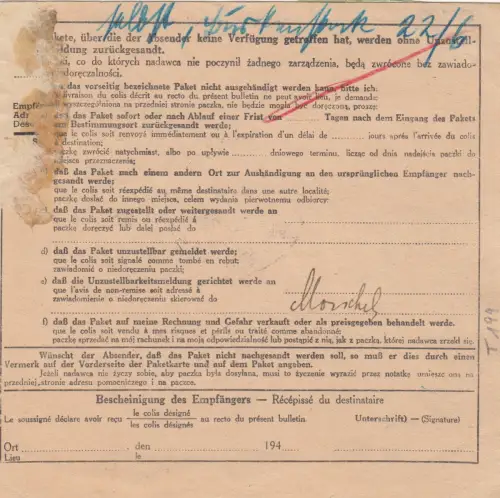 selbst, 22/6
kete, über die der Absender keine Verfügung getroffen hat, werden ohne Unanstell-
ldung zurückgesandt.
ki, co do których nadawca nie poczynił żadnego zarządzenia, będą zwrócone bez zawiado-
edoręczalności.
das vorseitig bezeichnete Paket nicht ausgehändigt werden kann, bitte ich:
livraison du colis décrit au recto du présent bulletin ne peut avoir lieu, je demande:
wyszczególniona na przedniej stronie paczka, nie będzie mogła być doręczona, proszę:
Empfän
Adr
Des
das Paket sofort oder nach Ablauf einer Frist von Tagen nach dem Eingang des Pakets
Bestimmungsort zurückgesandt werde;
le colis soit renvoyé immédiatement ou à l'expiration d'un délai de jours après l'arrivée du colis
destination;
czkę zwrócić natychmiast, albo po upływie dniowego terminu, licząc od dnia nadejścia paczki do
miejsca przeznaczenia;
daß das Paket nach einem anderen Ort zur Aushändigung an den ursprünglichen Empfänger nach-
gesandt werde;
que le colis soit réexpédié au même destinataire dans une autre localité;
paczkę dosłano do innego miejsca, celem wydania pierwotnemu odbiorcy:
daß das Paket zugestellt oder weitergesandt werde an
que le colis soit remis ou réexpédié à
paczkę doręczyć lub dalej posłać do
d) daß das Paket unzustellbar gemeldet werde;
que le colis soit signalé comme tombé en rebut;
zawiadomić o niedoręczeniu paczki;
e) daß die Unzustellbarkeitsmeldung gerichtet werde an
que l'avis de non-remise soit adressé à
zawiadomienie o niedoręczeniu skierować do
Morschel
f) daß das Paket auf meine Rechnung und Gefahr verkauft oder als preisgegeben behandelt werde.
que le colis soit vendu à mes risques et périls ou traité comme abandonné;
paczkę sprzedać na mój rachunek i na moją odpowiedzialność lub postąpić z nią, jak z paczką, której nadawca zrzekł się.
Wünscht der Absender, daß das Paket nicht nachgesandt werden soll, so muß er dies durch einen
Vermerk auf der Vorderseite der Paketkarte und auf dem Paket angeben.
Jeżeli nadawca nie życzy sobie, aby paczka była dosyłana, musi to życzenie wyrazić przez notatkę umieszczoną na
przedniej stronie adresu pomocniczego i na paczce.
Bescheinigung des Empfängers — Récépissé du destinataire
Le soussigné déclare avoir reçu le colis désigné au recto du présent bulletin. Unterschrift) - (Signature)
les colis désignés
Ort den 194
Lieu le
T 199